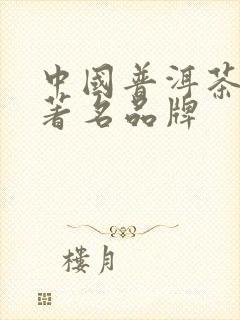 中國普洱茶
著名品牌
樓月